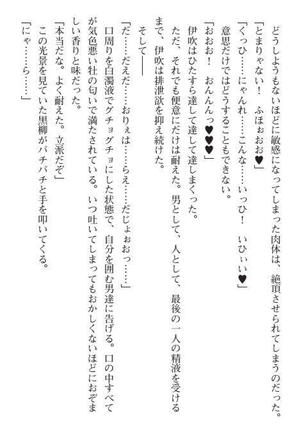 どうしようもないほどに敏感になってしまった肉体は、絶頂させられてしまうのだった。
「とまりゃない！　ふほぉおお♥♥」
「くっひ！　にゃんれ……こんな……いっひ！　いひぃい♥」
意思だけではどうすることもできない。
「おおお！　おんんんっ♥♥♥」
伊吹はひたすら達して達して達しまくった。
ただ、それでも便意にだけは耐えた。男として、人として、最後の一人の精液を受ける
まで、伊吹は排泄欲を抑え続けた。
そして――
「だ……だえだ……おりぇは……らえ……だじょぉおっ……」
口周りを白濁液でグチョグチョにした状態で、自分を囲む男達に告げる。口の中すべて
が気色悪い牡の匂いで満たされている。いつ吐いてしまってもおかしくないほどにおぞま
しい香りと味だった。
「本当だな。よく耐えた。立派だぞ」
この光景を見ていた黒柳がパチパチと手を叩いてくる。
「にゃ……ら……」